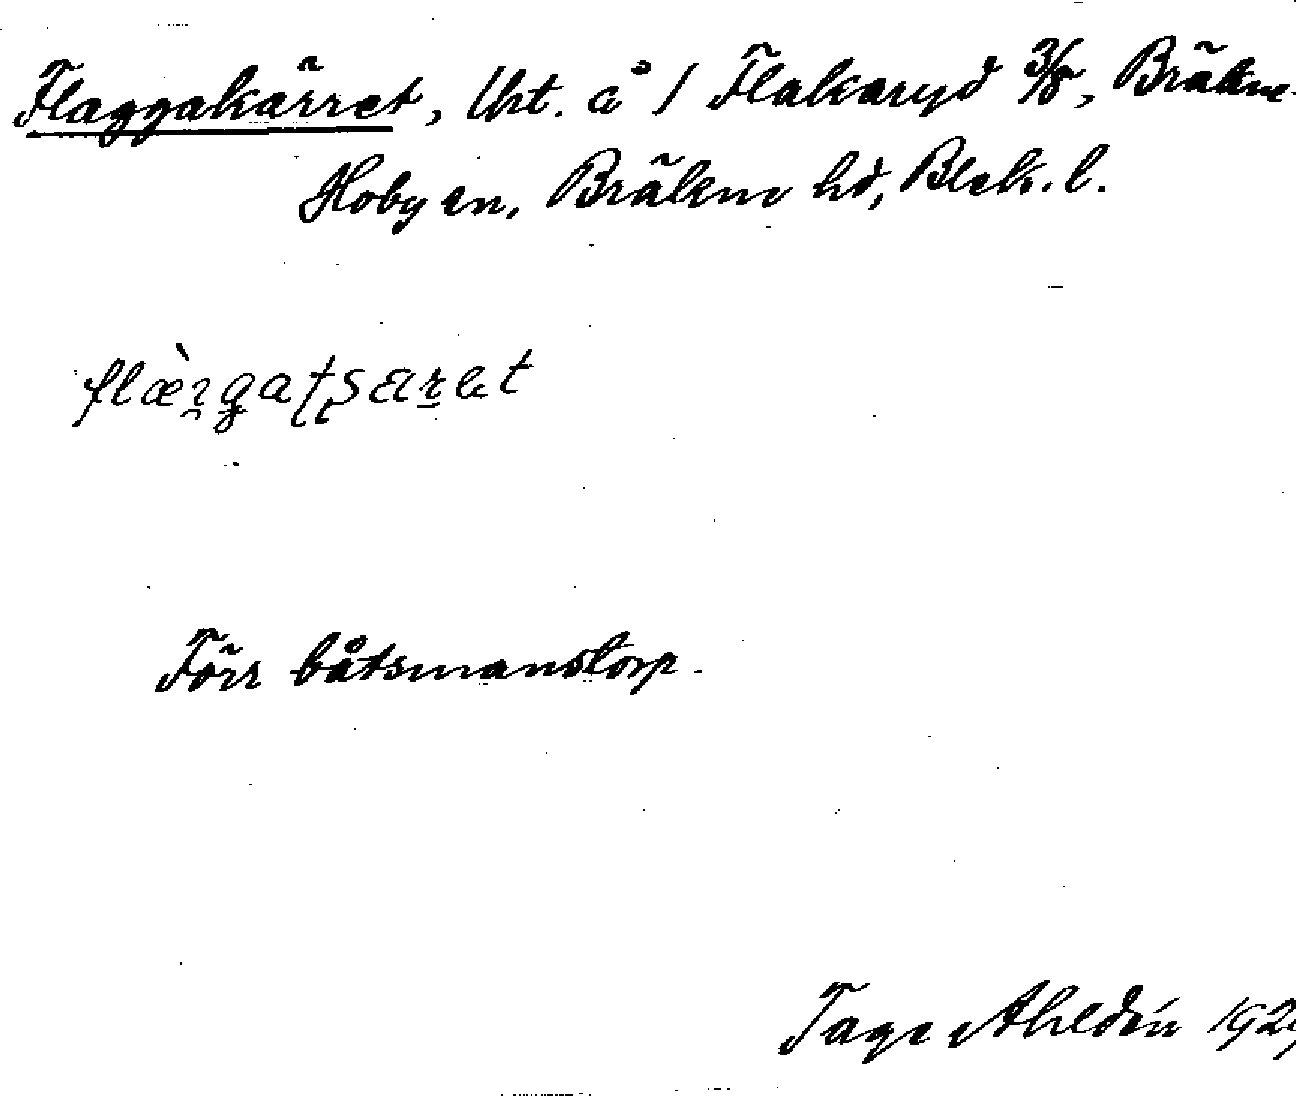 Flaggakärret, Uht. å 1 Flakaryd 3/8, Bräkne-
Hoby sn, Bräkne hd, Blek. l.
Förr båtsmanstorp.
Tage Ahldén 192